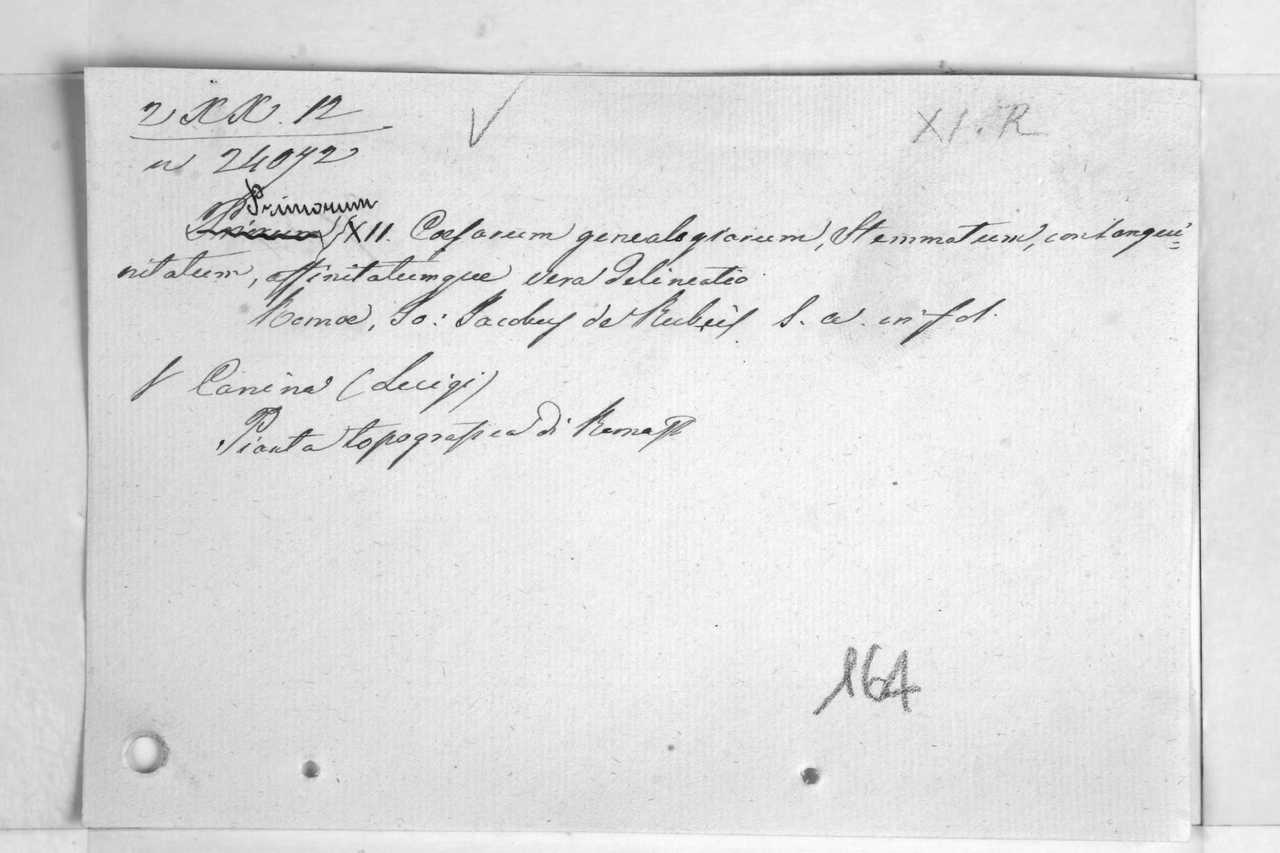 2 XX. 12
XI. R
n 24072
Primorum
XII. Caesarum genealogiarum, Stemmatum, consangui=
nitatum, affinitatumque vera delineatio
Romae, Jo: Jacobus de Rubeis S. a. in fol.
Canina (Luigi)
Pianta topografica di Roma
164